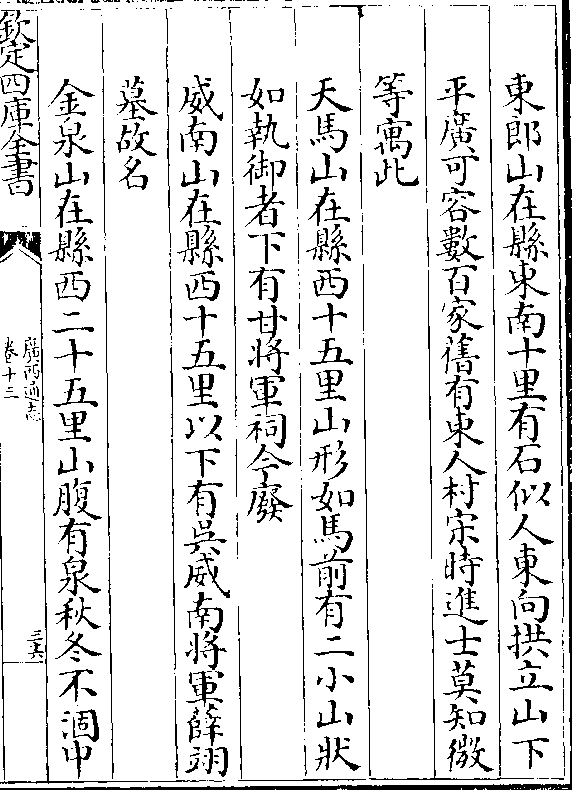 東郎山在縣東南十里有石似人東向拱立山下
平廣可容數百家舊有東人村宋時進士莫知微
等寓此
天馬山在縣西十五里山形如馬前有二小山狀
如執御者下有甘將軍祠今廢
威南山在縣西十五里以下有吳威南將軍薛翊
墓故名
金泉山在縣西二十五里山腹有泉秋冬不涸中
欽定四庫全書
廣西通志
卷十三
三六